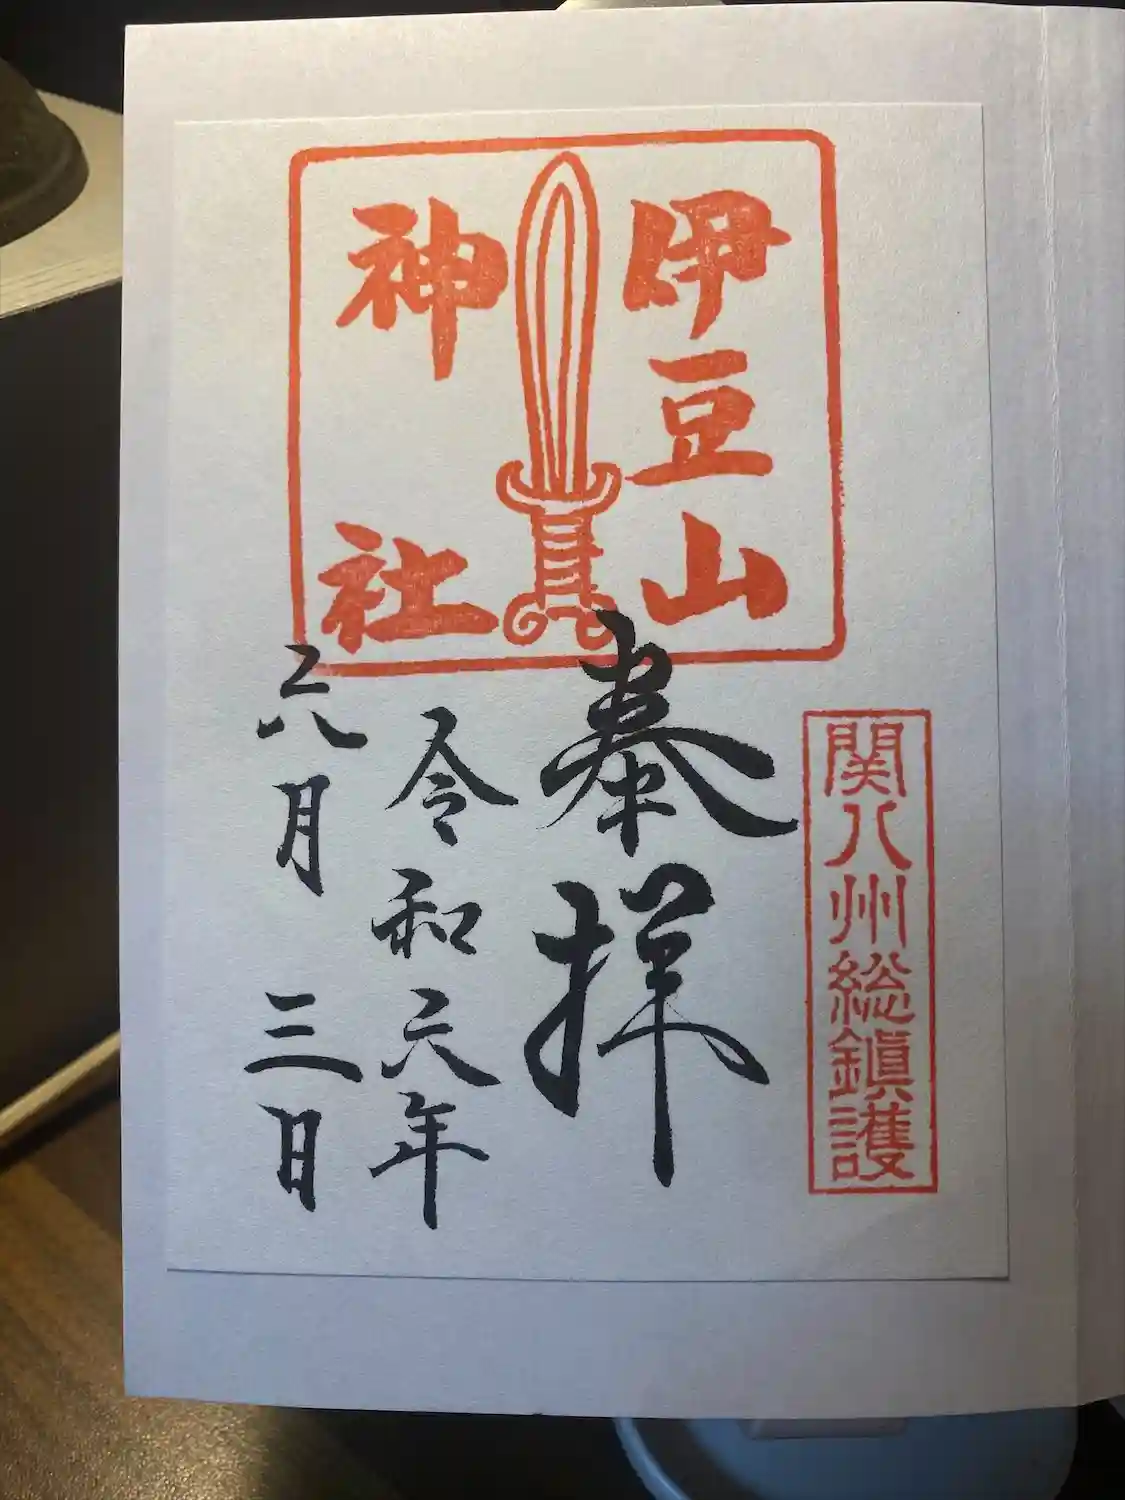 伊豆山
神社
関八州総鎭護
奉拝
令和六年
六月三日